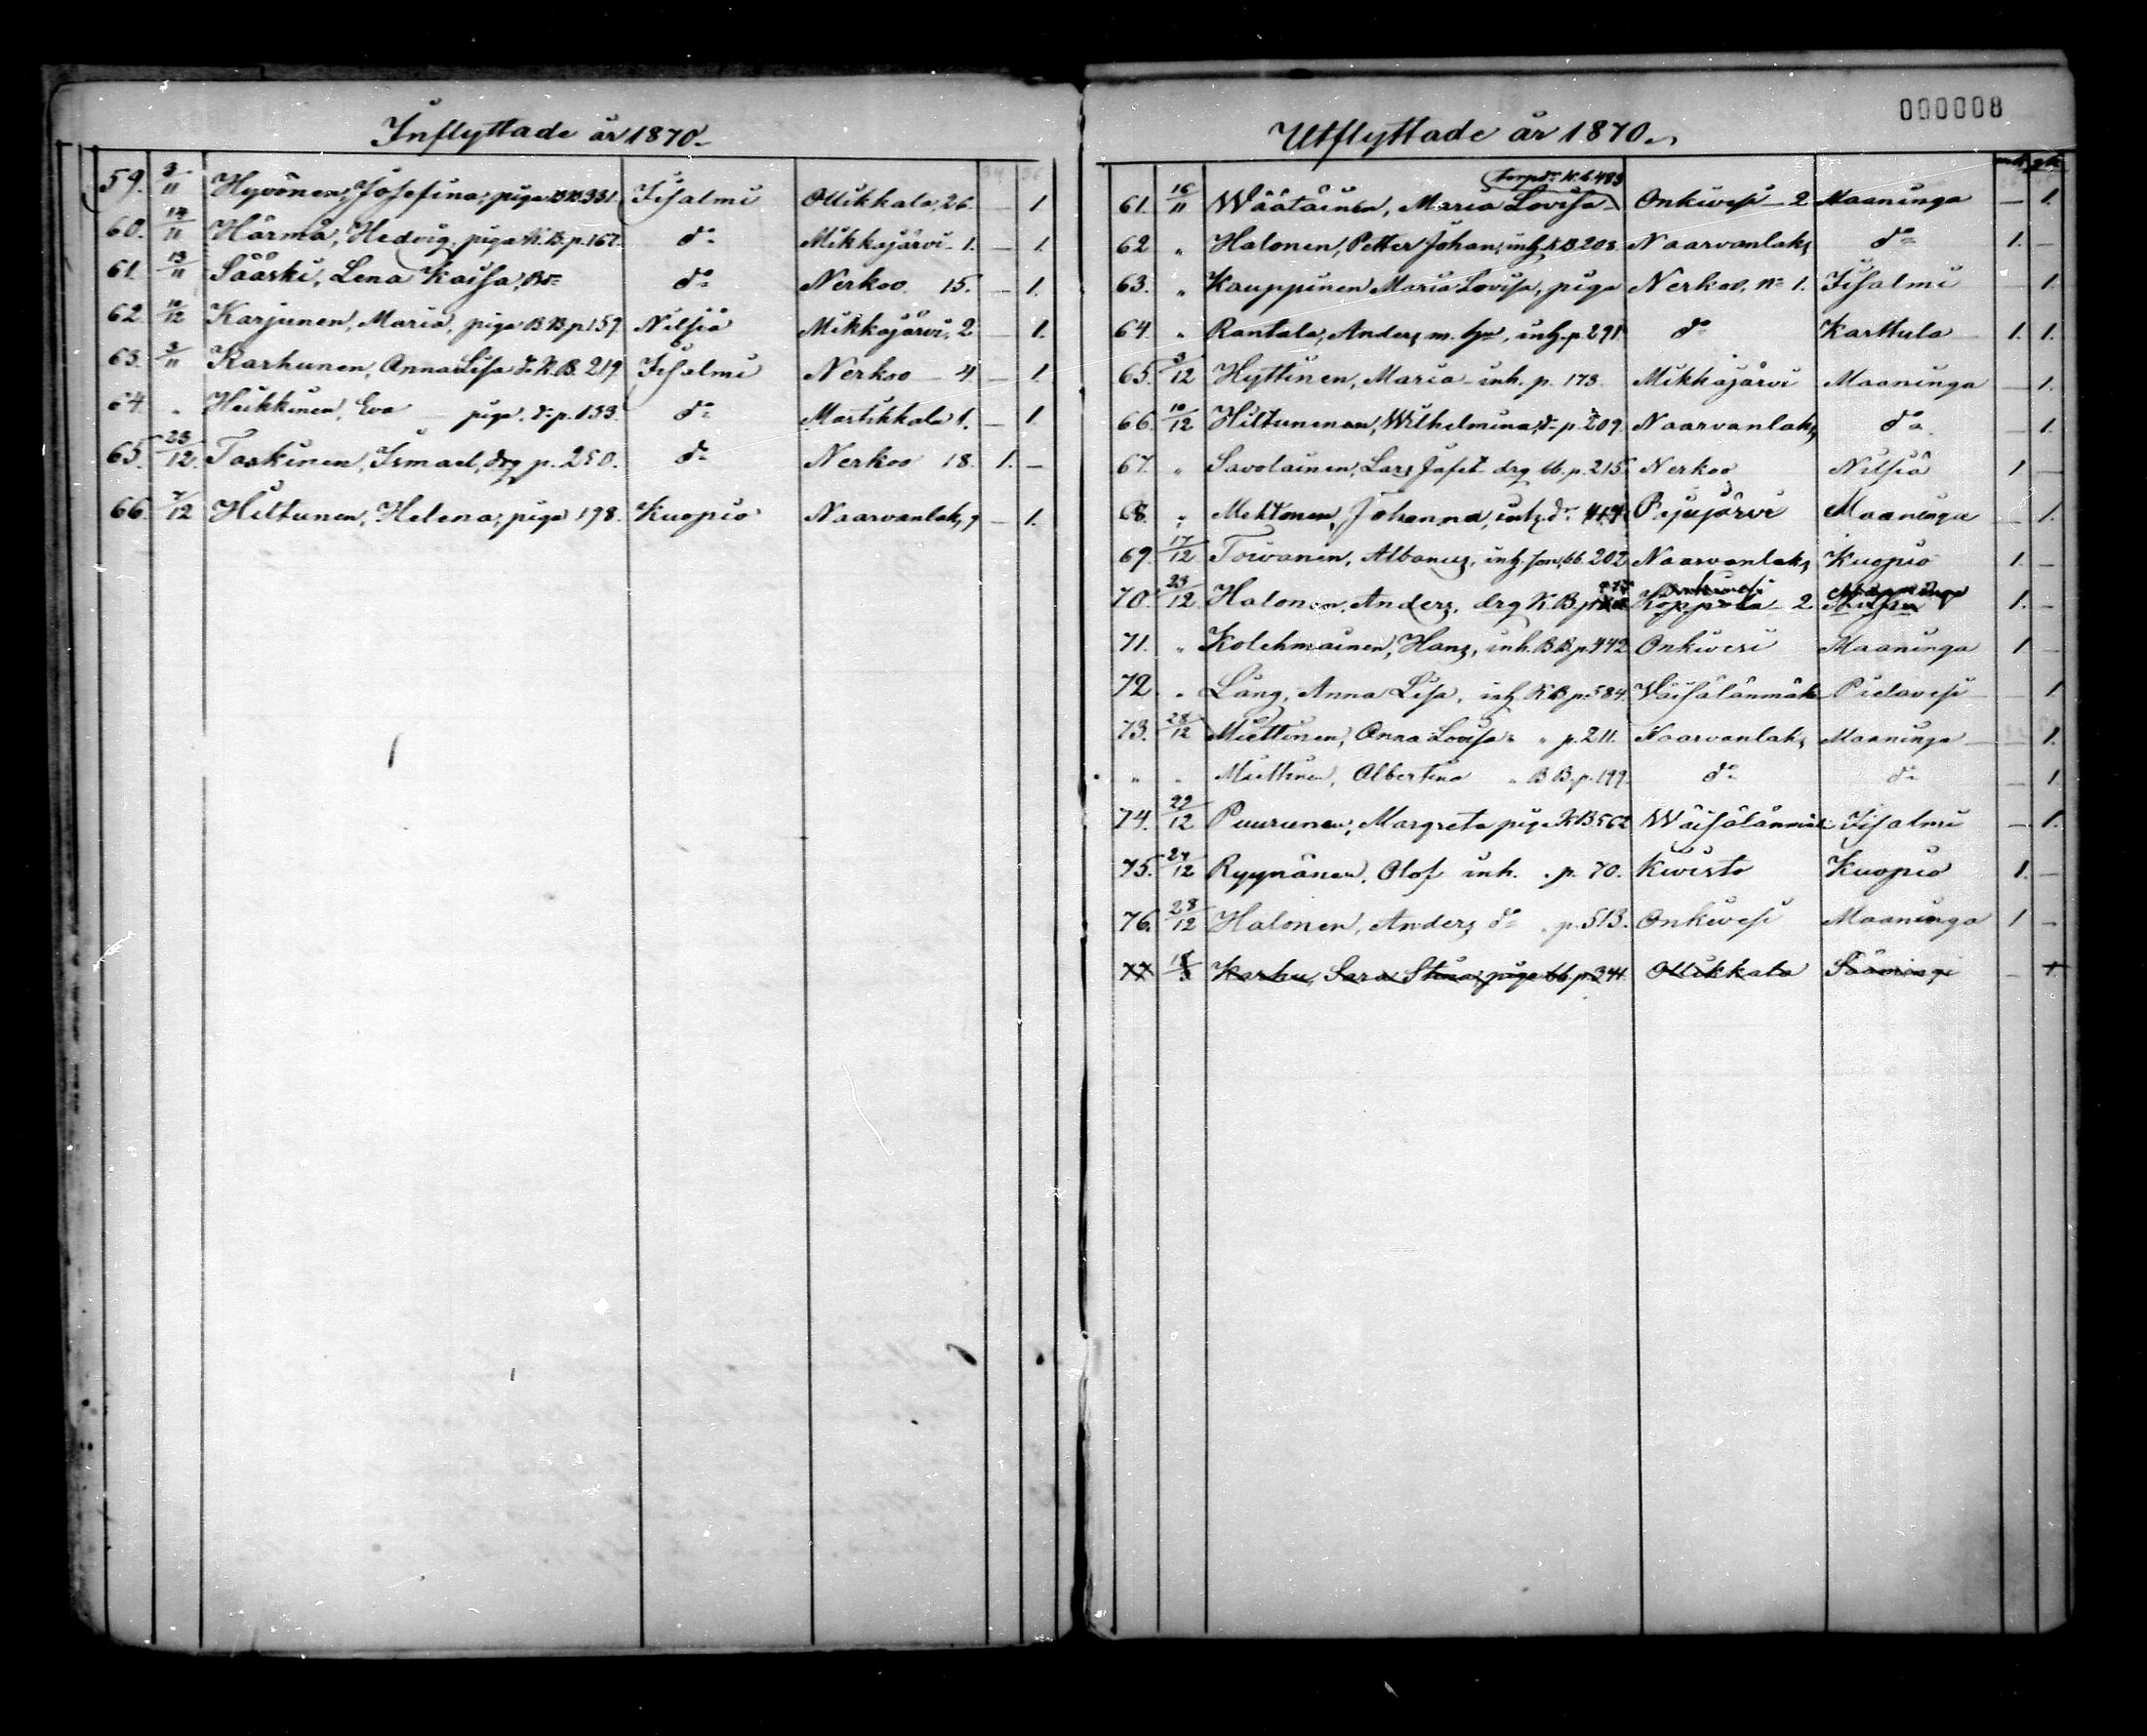 Inflyttade år 1870.
59. 3/11 Hyvönen, Josefina, piga BB 331. Iisalmi Ollikkala, 26. — 1.
60. 14/11 Härmä, Hedvig, piga K.B. p. 167. do Mikkajärvi 1. — 1.
61. 13/11 Sääski, Lena Kaisa, do Nerkoo 15. — 1.
62. 10/12 Karjunen, Maria, piga BB p 159 Nilsiä Mikkajärvi, 2. — 1.
63. 3/11 Karhunen, Anna Lisa do K.B. 219 Iisalmi Nerkoo 4 — 1.
64. „ Heikkinen, Eva piga. do p. 133. do Martikkala 1. — 1.
65. 23/12. Taskinen, Ismael, drg p. 250. do Nerkoo 18. 1. —
66. 7/12 Hiltunen, Helena, piga 198. Kuopio Naarvanlaks, 9 — 1.
000008
Utflyttade år 1870.
mk. qk.
torpdr K.b. 483
61. 16/11 Wäätäinen, Maria Lovisa Onkivesi 2 Maaninga — 1.
62 „ Halonen, Petter Johan, inh. K.B. 208. Naarvanlaks do 1. —
63. „ Kauppinen Maria Lovisa, piga Nerkoo, No 1. Iisalmi — 1.
64. „ Rantala, Anders m. hu, inh. p. 291 do Karttula 1. 1.
65. 3/12 Hyttinen, Maria inh. p. 173. Mikkajärvi Maaninga — 1.
66. 10/12 Hiltunen, Wilhelmina, do p. 209. Naarvanlaks do — 1.
67. „ Savolainen, Lars Jafet drg bb. p. 215 Nerkoo Nilsiä 1 —
68. „ Johanna, inh. do Pajujärvi Maaninga — 1.
69. 17/12 Toivanen, Albanus, inh. son, bb. 202 Naarvanlaks Kuopio 1. —
Onkivesi Maaninga
70. 23/12 Halonen, Anders, drg K.B. p Koppola 2 1. —
71. „ Kolehmainen, Hans, inh. B.B. p 442 Onkivesi Maaninga 1 —
72 „ Lång, Anna Lisa, inh. K.B. p. 584. Väisälänmäki Pielavesi — 1
73. 28/12 Miettinen, Anna Lovisa „ p. 211. Naarvanlaks Maaninga — 1.
„ „ Miettinen, Albertina „ B.B. p. 199. do do — 1
74. 22/12 Puurunen, Margreta piga KB 502 Wäisälänmäki Iisalmi — 1.
75. 27/12 Ryynänen, Olof inh. „ p. 70. Kivistö Kuopio 1. —
76. 28/12 Halonen, Anders do „ p. 513. Onkivesi Maaninga 1 —
Karhu, Sara Stina, piga bb. p 344. Ollikkala Sääminge — 1